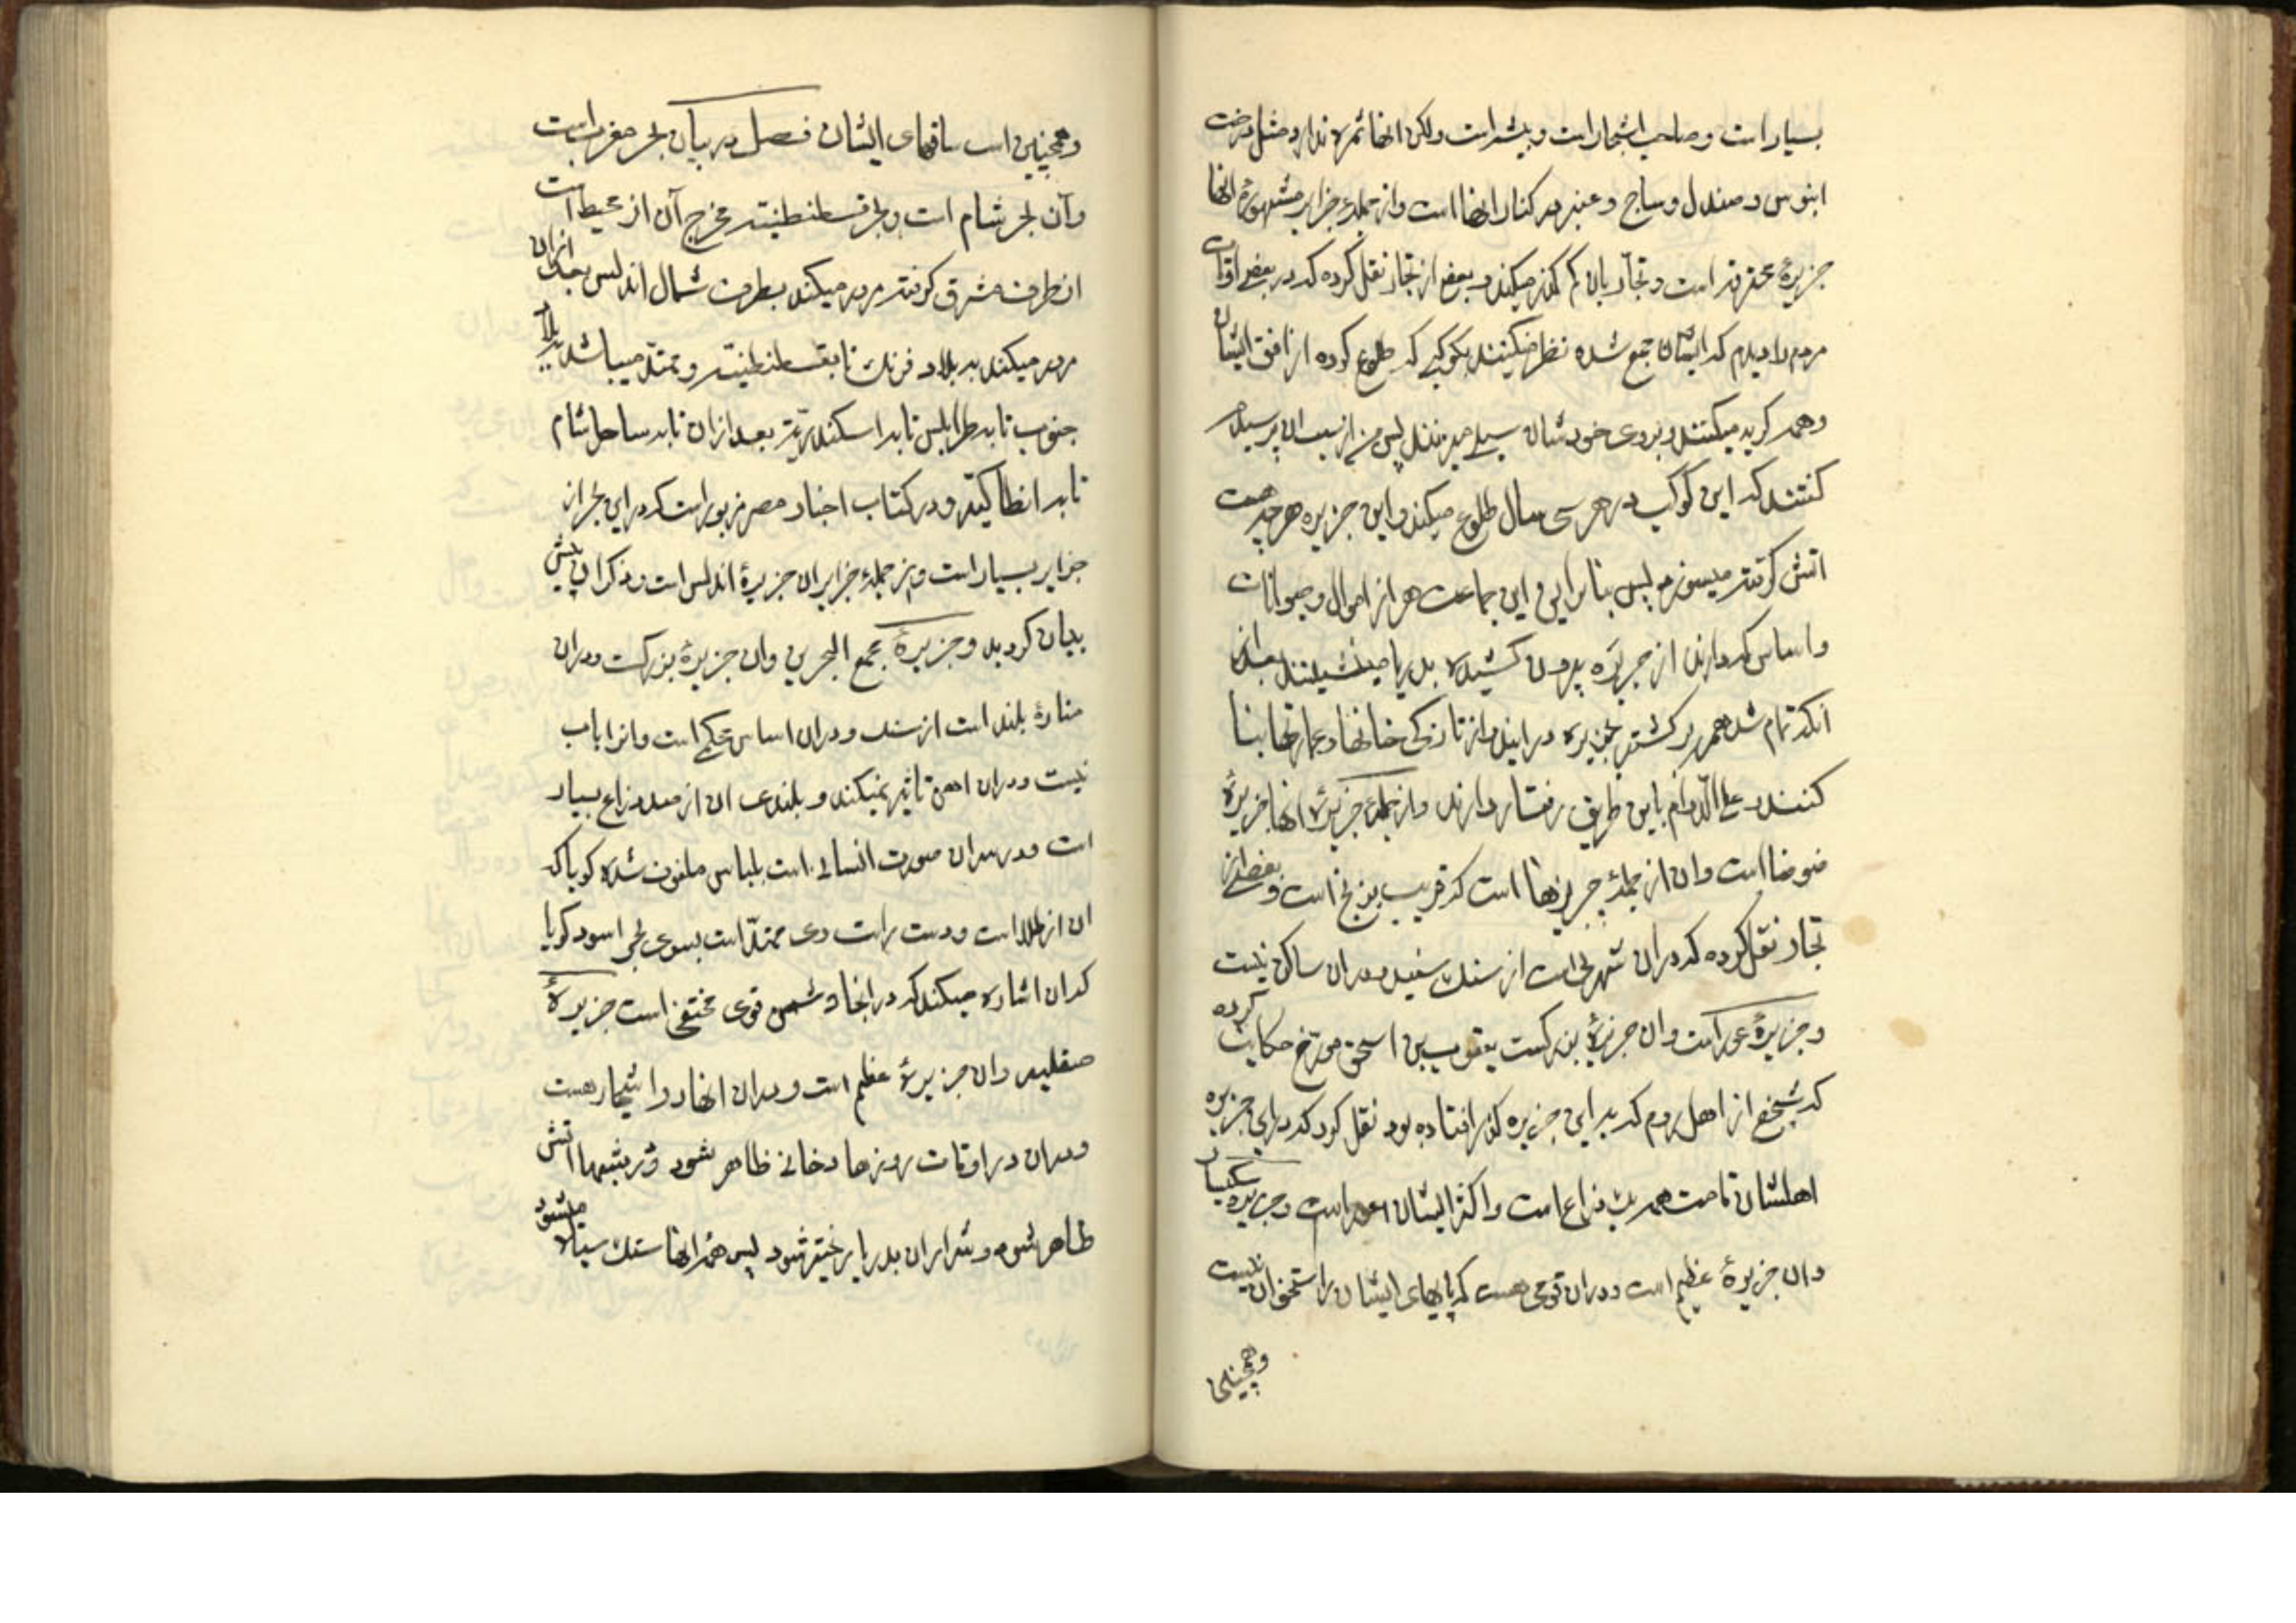 بسیار است و صاحب اشجار است و بیشه است ولکن انها ثمره ندارد مثل درخت
ابنوس و صندل و ساج و عنبر در کنار انها است و از جمله جزایر مشهورهٔ انها
جزیرهٔ محترقه است و تجار بان کم گذر میکنند و بعض از تجار نقل کرده که در بعض اوقات
مردم را دیدم که ایشان جمع شده نظر میکنند بکوکبی که طلوع کرده از افق ایشان
و همه گریه میکنند و بروی خودشان سیلی میزنند پس من از سبب ان پرسیدم
گفتند که این کوکب در هر سی سال طلوع میکند و این جزیره هر چه هست
اتش گرفته میسوزد پس بنا براین این جماعت هر از اموال و حیوانات
و اساس که دارند از جزیره بیرون کشیده بدریا مینشینند بعد از
انکه تمام شد همه برگشته بجزیره در ایند و از تازکی خانها و عمارتها بنا
کنند و علی الدوام باین طریق رفتار دارند و از جمله جزیرهٔ انها جزیرهٔ
ضوضا است و ان از جمله جزیرها است که قریب بزنج است و بعض از
تجار نقل کرده که دران شهری است از سنک سفید و دران ساکن نیست
و جزیرهٔ عور است وان جزیرهٔ بزرکست یعقوب بن اسحق مورخ حکایت کرده
که شخصی از اهل روم که به این جزیره گذر افتاده بود نقل کرد که در این جزیره
اهلشان قامت همه یک ذراع است و اکثر ایشان اعور است و جزیره سکسار
وان جزیرهٔ عظیم است و دران قومی هست که پایهای ایشان را استخوان نیست
وهمچنین
وهمچنین است ساقهای ایشان فصل در بیان بحر مغرب است
وآن بحر شام است و بحر قسطنطنیه مخرج آن از محیط است
از طرف مشرق گرفته مرور میکند بطرف شمال اندلس بعد ازان
مرور میکند به بلاد فرنک تا بقسطنطنیه و ممتد میباشد بلاد
جنوب تا به طرابلس تا به اسکندریه بعد ازان تا به ساحل شام
تا به انطاکیه و در کتاب اخبار مصر مزبور است که در این بحر از
جزایر بسیار است و از جمله جزایر ان جزیرهٔ اندلس است و ذکر ان پیش
بیان کردید و جزیرهٔ مجمع البحرین وان جزیرهٔ بزرکست و دران
منارهٔ بلند است از سنک و دران اساس محکم است و انرا باب
نیست و دران اهن تاثیر نمیکند و بلندی ان از صد ذراع بسیار
است و در سران صورت انسانی است بلباس ملفوف شده کویا که
ان از طلا است و دست راست وی ممتد است بسوی بحر اسود کویا
که ان اشاره میکند که در انجا دشمن قوی مختفی است جزیرهٔ
صقلیه وان جزیرهٔ عظیم است و دران انهار و اشجار هست
و دران در اوقات روزها دخانی ظاهر بشود و در شبها اتش
ظاهر شود و شراران بدریا ریخته شود پس همه انها سنک سیاه میشود